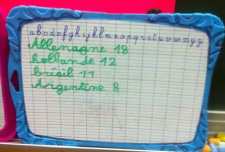 abcdefghijklmnopqrstuvwxyz
Allemagne 18
hollande 12
brésil 11
Argentine 8